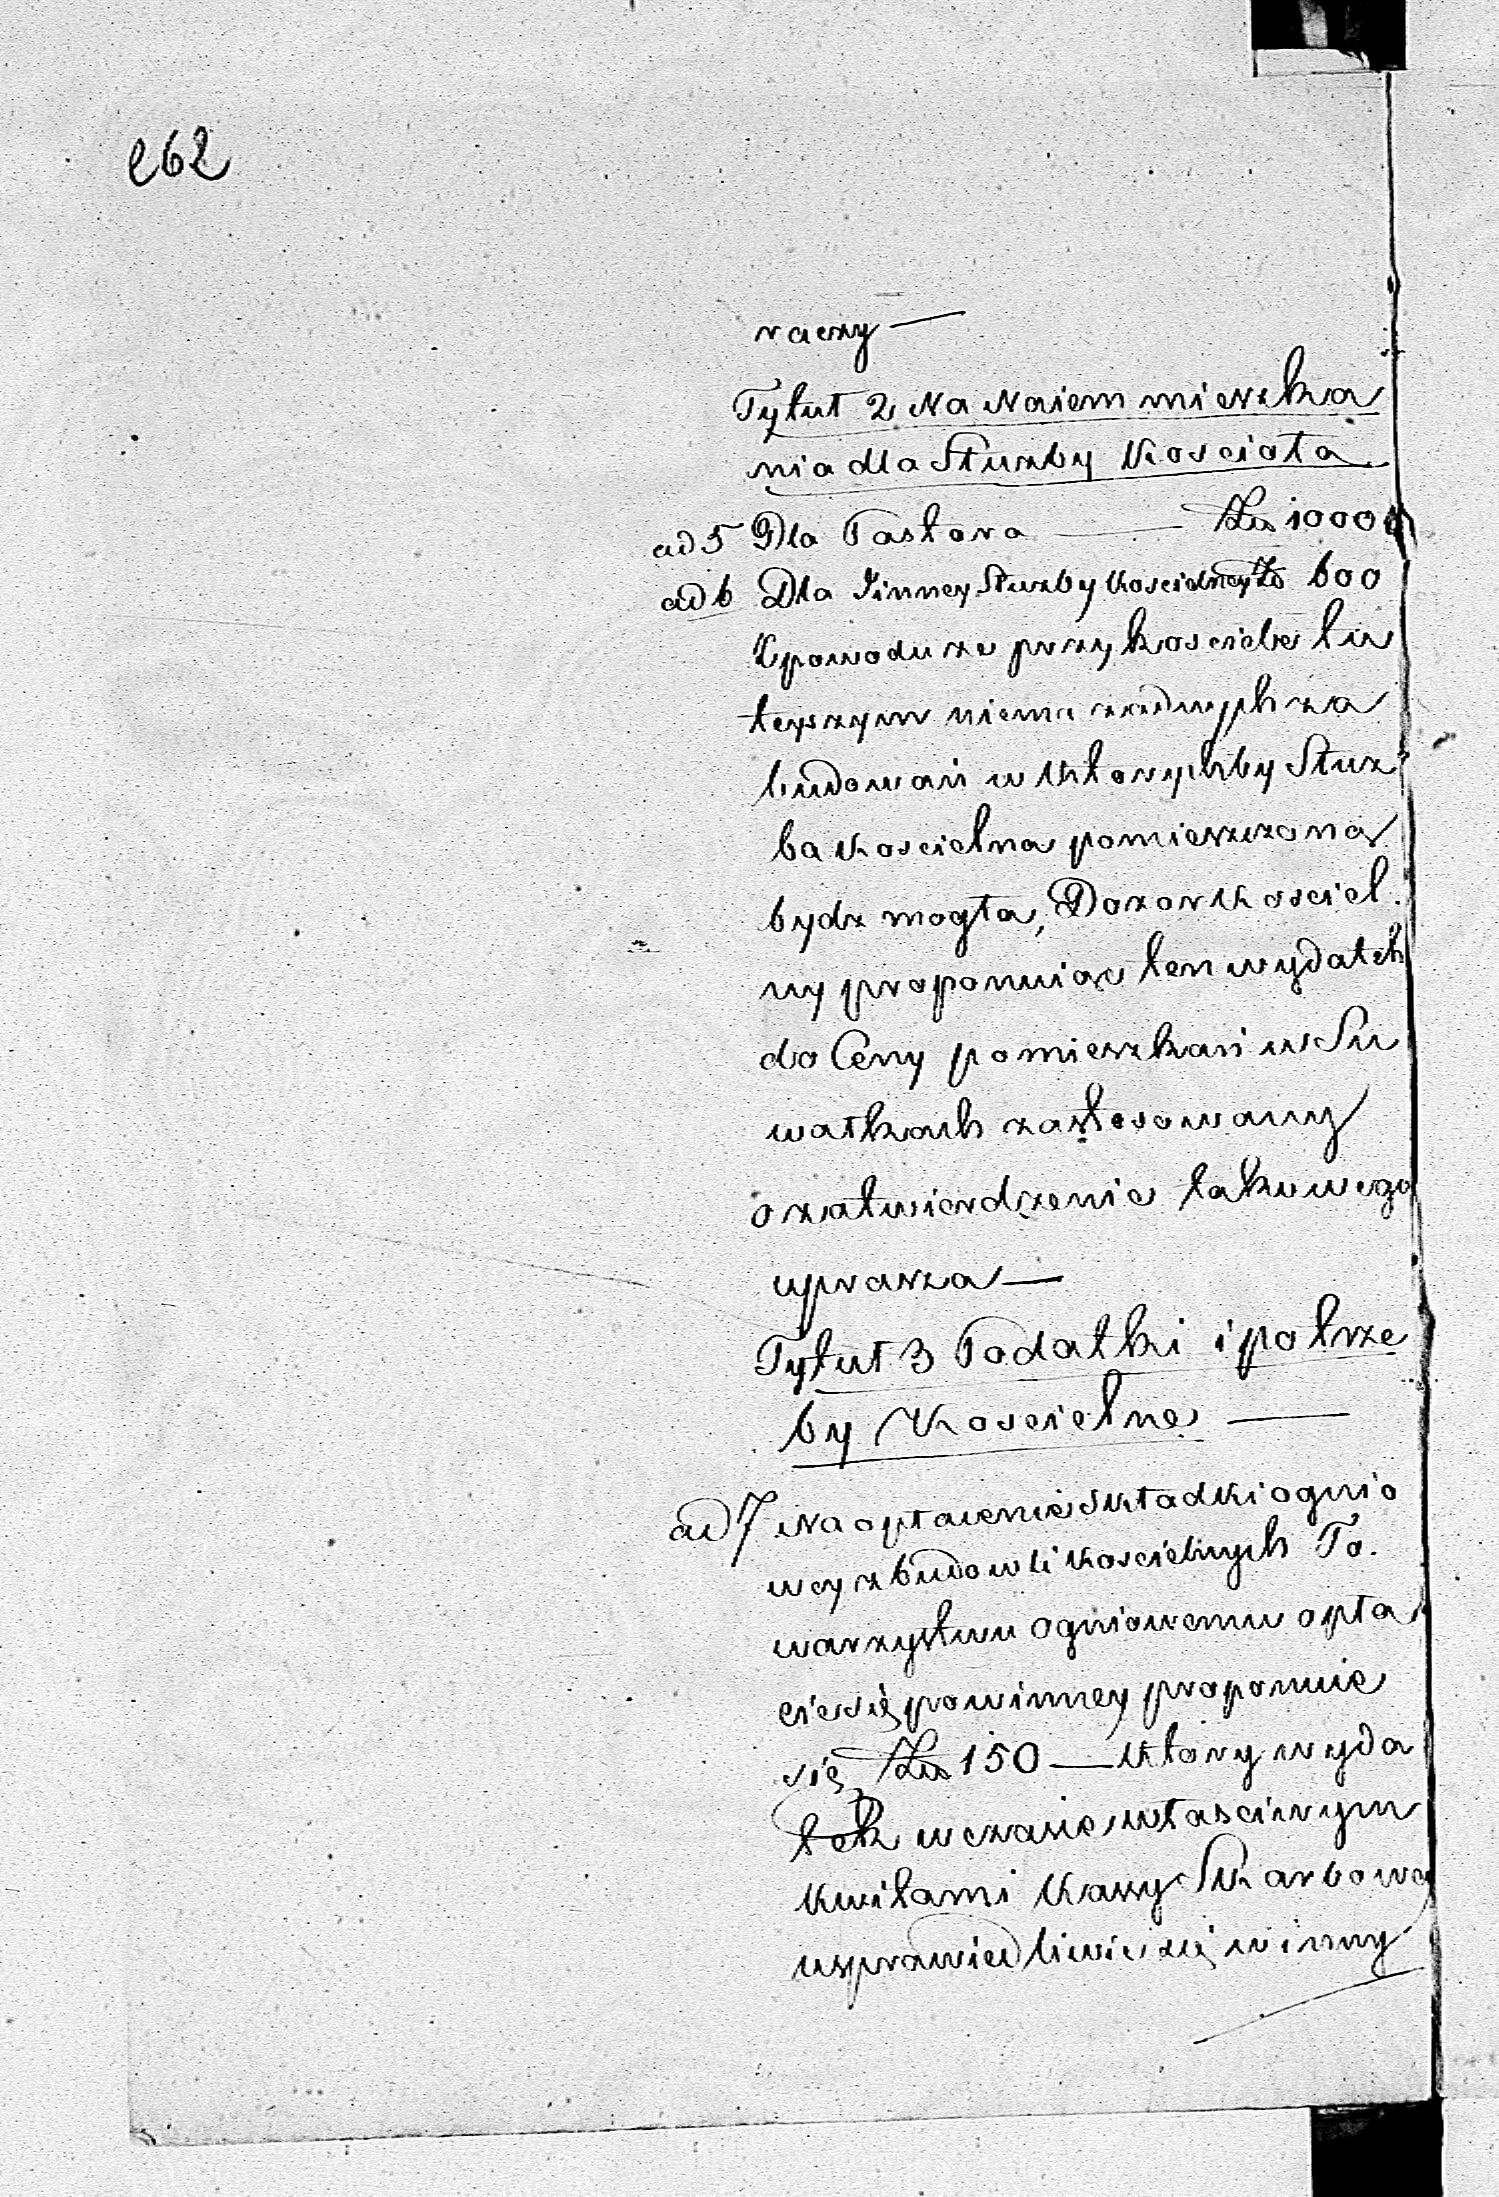 262
raczy —
Tytuł 2 Na Naiem mieszka
nia dla Służby Koscioła
ad 5 Dla Pastora — Złp 1000
ad 6 Dla Jinney Służby Koscielney Złp 600
Z powodu ze przy kosciele Lu
teyszym niema zadnych za
budowań w których by Służ
ba Koscielna pomieszczona
bydz mogła, Dozor Kosciel.
ny proponuiąc ten wydatek
do Ceny pomieszkań w Su
wałkach zastosowany
o zatwierdzenie takowego
uprasza —
Tytuł 3 Podatki i potrze
by Koscielne —
ad 7 Na opłacenie Składki ognio
wey z budowli Koscielnych To.
warzystwu Ogniowemu opła
cic się powinney proponuie
się Złp 150 — który wyda
tek w czasie własciwym
kwitami Kassy Skarbowey
usprawiedliwic się winny